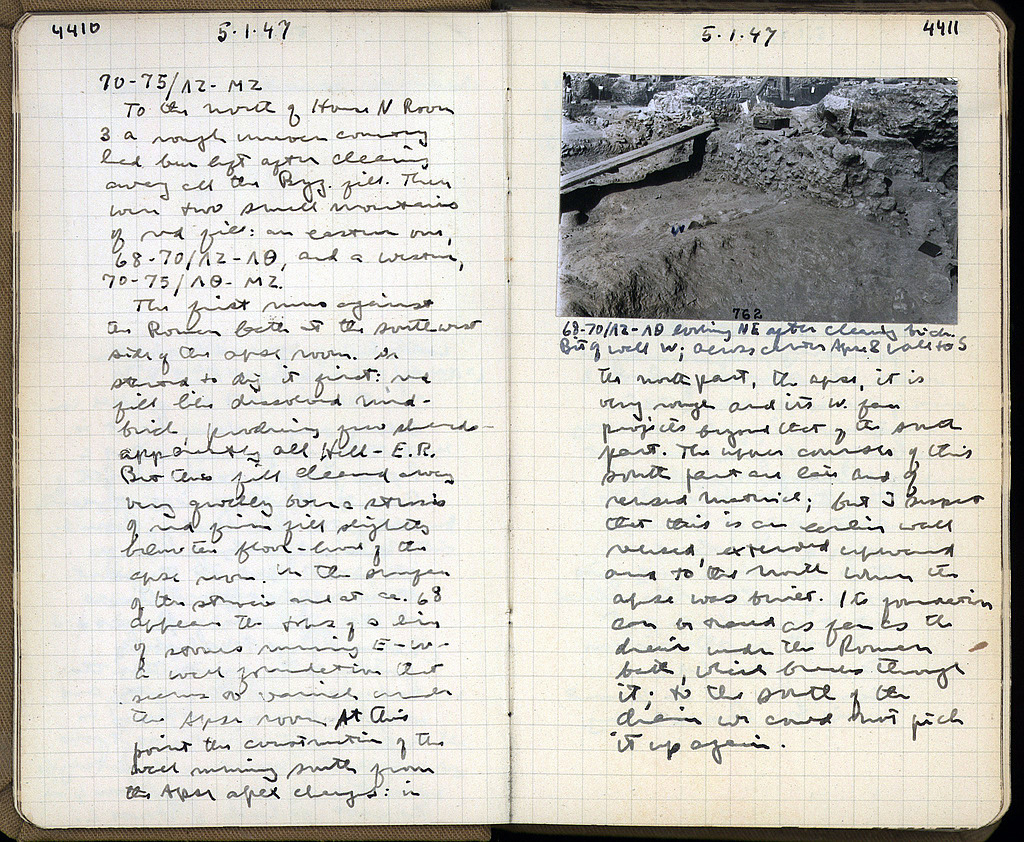 4410
5·1·47
70-75/ΛΖ-ΜΖ
To the north of House N Room
3 a rough uneven country
had been left after clearing
away all the Byz. fill. There
were two small mountains
of red fill: an eastern one,
68-70/ΛΖ-ΛΘ, and a western,
70-75/ΛΘ-ΜΖ.
The first runs against
the Roman bath at the southwest
side of the apse room. We
started to dig it first: red
fill like dissolved mud-
brick, producing few sherds-
apparently all Hell-E.R.
But this fill cleaned away
very quickly over a stratum
of red firm fill slightly
below the floor-level of the
apse room. In the surface
of the stratum and at ca. 68
appears the tops of a line
of stones running E-W-
a wall foundation that
seems to vanish under
the Apse room. At this
point the construction of the
wall running south from
the Apse apex changes: in
5·1·47
4411
762
68-70/ΛΖ-ΛΘ looking NE after clearing brick.
Bit of wall W; across corner Apse & wall to S
the north part, the apse, it is
very rough and its W. face
projects beyond that of the south
part. The upper courses of this
south part are late and of
reused material; but I suspect
that this is an earlier wall
reused, extended upward
and to the north when the
apse was built. Its foundation
can be traced as far as the
drain under the Roman
bath, which breaks through
it; to the south of the
drain we could not pick
it up again.